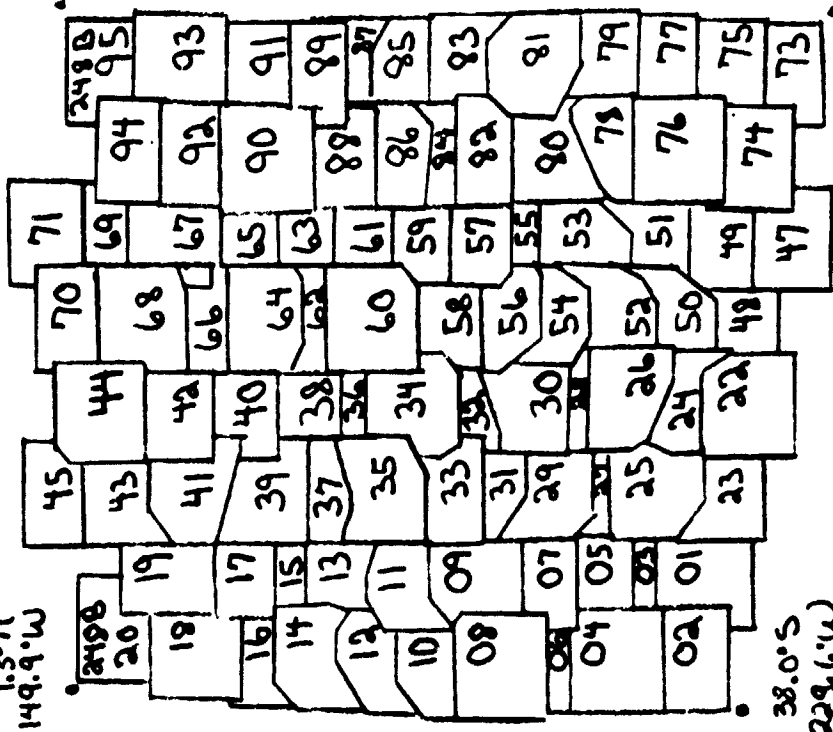 248B
95 93 91 89 87 85 83 81 79 77 75 73
94 92 90 88 86 84 82 80 78 76 74
71 69 67 65 63 61 59 57 55 53 51 49 47
70 68 66 64 62 60 58 56 54 52 50 48
44 42 40 38 36 34 32 30 26 24 22
45 43 41 39 37 35 33 31 29 27 25 23
19 17 15 13 11 09 07 05 03 01
248B
20 18 16 14 12 10 08 06 04 02
149.9°W
38.0°S